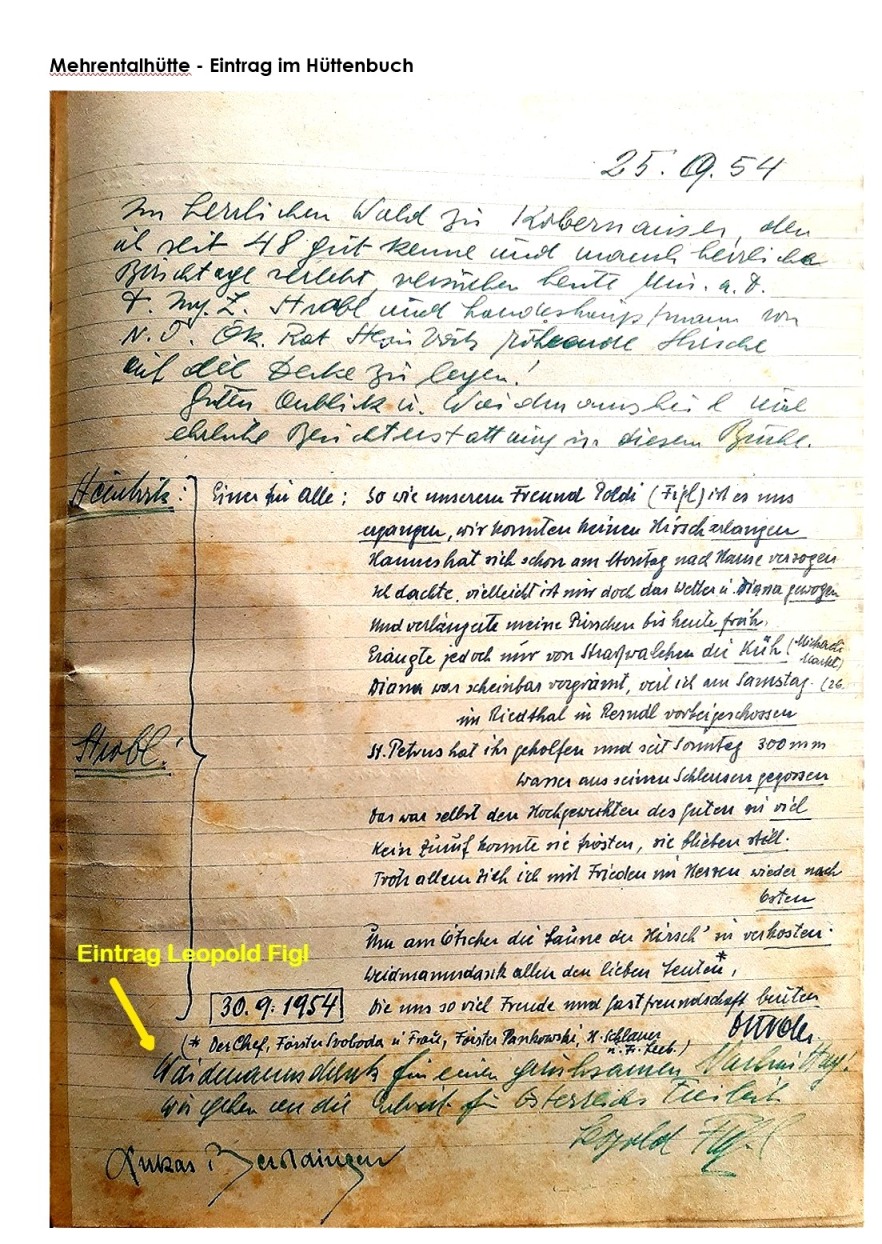 Mehrentalhütte - Eintrag im Hüttenbuch
25. 9. 54
Im herrlichen Wald zu Kobernausen, den
ich seit 48 gut kenne und manch herrliche
Pirschtage verlebt, versuchen heute Min. a. D.
Strobl und Landeshauptmann von
N. Ö. Ök. Rat röhrende Hirsche
auf die Decke zu legen!
Guten Anblick u. Waidmannsheil und
ehrliche Berichterstattung in diesem Buche.
Steinböck:
Einer für Alle: So wie unserem Freund Poldi (Figl) ist es uns
ergangen, wir konnten keinen Hirsch erlangen
Hannes hat sich schon am Montag nach Hause verzogen
Ich dachte, vielleicht ist mir doch das Wetter u. Diana gewogen
Und verlängerte meine Pirschen bis heute früh.
Eräugte jedoch nur von Straßwalchen die Küh (Michaeli
Markt)
Diana war scheinbar vergrämt, weil ich am Samstag (26.
im Riedthal in Perndl vorbeigeschossen
Strobl!
St. Petrus hat ihr geholfen und seit Sonntag 300 mm
Wasser aus seinen Schleusen gegossen
Das war selbst den Hochgeweihten des guten zu viel
Kein Zuruf konnte sie trösten, sie blieben still.
Trotz allem zieh ich mit Frieden im Herzen wieder nach
Osten
Um am Ötscher die Laune der Hirsch' zu verkosten.
Weidmannsdank allen den lieben Leuten*,
Eintrag Leopold Figl
30. 9. 1954
Die uns so viel Freude und Gastfreundschaft beuten
(* Der Chef, Förster Svoboda u Frau, Förster Pankowski, H. Schlauer
u. Fr. Leeb.)
Waidmannsdank für einen geruhsamen
wir gehen an die Arbeit für Österreichs Freiheit
Leopold Figl
Lukas Beroldingen